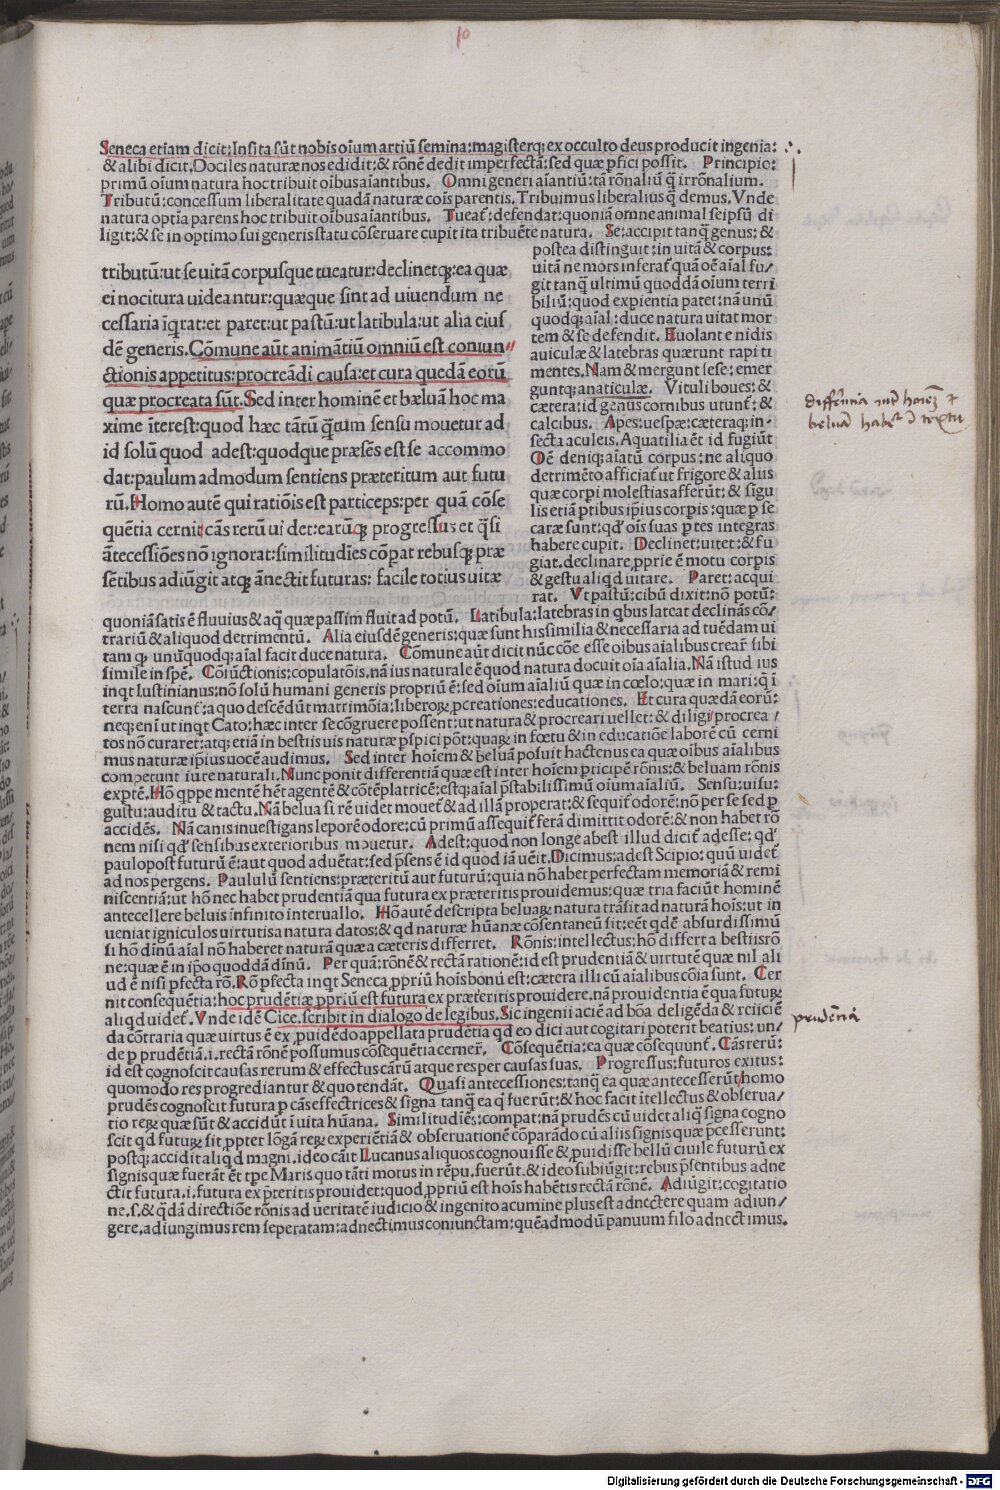 10
Seneca etiam dicit: Insita sūt nobis oīum artiū semina: magisterq; ex occulto deus producit ingenia:
& alibi dicit. Dociles naturæ nos edidit: & rōnē dedit imperfectā: sed quæ ꝑfici possit. Principio:
primū oīum natura hoc tribuit oībus aīantibus. Omni generi aīantiū: tā rōnaliū q̄ irrōnalium.
Tributū: concessum liberalitate quadā naturæ cōis parentis. Tribuimus liberalius q̄ demus. Vnde
natura optīa parens hoc tribuit oībus aīantibus. Tueat̄: defendat: quoniā omne animal seipsū di
ligit: & se in optimo sui generis statu cōseruare cupit ita tribuēte natura. Se: accipit tanq̄ genus: &
tributū: ut se uitā corpusque tueatur: declinetq; ea quæ
ei nocitura uideantur: quæque sint ad uiuendum ne
cessaria īq̄rat: et paret: ut pastū: ut latibula: ut alia eius
dē generis. Cōmune aūt animātiū omniū est coniun//
ctionis appetitus: procreādi causa: et cura quedā eorū
quæ procreata sūt. Sed inter hominē et bæluā hoc ma
xime īterest: quod hæc tātū q̄tum sensu mouetur ad
id solū quod adest: quodque præsēs est se accommo
dat: paulum admodum sentiens præteritum aut futu
rū. Homo autē qui ratiōis est particeps: per quā cōse
quētia cernit: cās rerū uidet: earūq; progressus et q̄si
āntecessiōes nō ignorat: similitudīes cōpat rebusq; præ
sētibus adiūgit atq; ānectit futuras: facile totius uitæ
postea distinguit: in uitā & corpus:
uitā ne mors inferat̄ quā oē aīal fu/
git tanq̄ ultimū quoddā oīum terri
biliū: quod expientia patet: nā unū
quodq; aīal: duce natura uitat mor
tem & se defendit. Euolant e nidis
auiculæ & latebras quærunt rapiti
mentes. Nam & mergunt sese: emer
guntq; anaticulæ. Vituli boues: &
cætera: id genus cornibus utunt̄: &
calcibus. Apes: uespæ: cæteraq; in-
secta aculeis. Aquatilia ēt id fugiūt
Oē deniq; aīatū corpus: ne aliquo
detrimēto afficiat̄ ut frigore & aliis
quæ corpi molestias afferūt: & sigu
lis etiā ꝑtibus ipīus corpis: quæ ꝑ se
caræ sunt: qd̄ oīs suas ꝑtes integras
habere cupit. Declinet: uitet: & fu
giat. declinare ꝓprie ē motu corpis
& gestu aliqd uitare. Paret: acqui
rat. Vt pastū: cibū dixit: nō potū:
quoniā satis ē fluuius & aq̄ quæ passim fluit ad potū. Latibula: latebras in qbus lateat declinās cō/
trariū & aliquod detrimentū. Alia eiusdē generis: quæ sunt his similia & necessaria ad tuēdam ui
tam q; unūquodq; aīal facit duce natura. Cōmune aūt dicit nūc cōe esse oībus aīalibus crear̄ sibi
simile in spē. Cōiūctionis: copulatōis. nā ius naturale ē quod natura docuit oīa aīalia. Nā istud ius
inqt Iustinianus: nō solū humani generis propriū ē: sed oīum aīaliū quæ in cœlo: quæ in mari: q̄ ī
terra nascunt̄: a quo descēdūt matrimōia: liberoꝝ ꝓcreationes: educationes. Et cura quædā eorū:
neq; enī ut inqt Cato: hæc inter se cōgruere possent: ut natura & procreari uellet: & diligi procrea/
tos nō curaret: atq; etiā in bestiis uis naturæ ꝑspici pōt: quaꝝ in fœtu & in educatiōe laborē cū cerni
mus naturæ ipīus uocē audimus. Sed inter hoīem & beluā posuit hactenus ea quæ oībus aīalibus
competunt iure naturali. Nunc ponit differentiā quæ est inter hoīem ꝑticipē rōnis: & beluam rōnis
expertē. Hō qppe mentē hēt agentē & cōtēplatricē: estq; aīal p̄stabilissimū oīum aīaliū. Sensu: uisu:
gustu: auditu & tactu. Nā belua si rē uidet mouet̄ & ad illā properat: & sequit̄ odorē: nō per se sed ꝑ
accidēs. Nā canis inuestigans leporē odore: cū primū assequit̄ ferā dimittit odorē: & non habet rō
nem nisi qd̄ sensibus exterioribus mouetur. Adest: quod non longe abest illud dicit̄ adesse: qd̄
paulo post futurū ē: aut quod aduētat: sed p̄sens ē id quod iā uēit. Dicimus: adest Scipio: quū uidet̄
ad nos pergens. Paululū sentiens: præteritū aut futurū: quia nō habet perfectam memoriā & remi
niscentiā: ut hō nec habet prudentiā qua futura ex præteritis prouidemus: quæ tria faciūt hominē
antecellere beluis īnfinito interuallo. Hō autē descripta beluaꝝ natura trāsit ad naturā hoīs: ut in
ueniat igniculos uirtutis a natura datos: & qd naturæ hūanæ cōsentaneū sit: eēt qdē absurdissimū
si hō dīnū aīal nō haberet naturā quæ a cæteris differret. Rōnis: intellectus: hō differt a bestiis rō
ne: quæ ē in ipō quoddā dīnū. Per quā: rōnē & rectā rationē: id est prudentiā & uirtutē quæ nil ali
ud ē nisi ꝑfecta rō. Rō ꝑfecta inqt Seneca ꝓpriū hoīs bonū est: cætera illi cū aīalibus cōia sunt. Cer
nit consequētia: hoc prudētiæ ꝓpriū est futura ex præteritis prouidere. nā prouidentia ē qua futuꝝ
aliqd uidet̄. Vnde idē Cice. scribit in dialogo de legibus. Sic ingenii aciē ad bōa deligēda & reiiciē
da cōtraria quæ uirtus ē ex ꝓuidēdo appellata prudētia qd eo dici aut cogitari poterit beatius: un/
de ꝑ prudētiā .i. rectā rōnē possumus cōsequētia cerner̄. Cōsequētia: ea quæ cōsequunt̄. Cās rerū:
id est cognoscit causas rerum & effectus carū atque res per causas suas. Progressus: futuros exitus:
quomodo res progrediantur & quo tendāt. Quasi antecessiones: tanq̄ ea quæ antecesserūt homo
prudēs cognoscit futura ꝑ cās effectrices & signa tanq̄ ea q̄ fuerūt: & hoc facit ītellectus & obserua/
tio reꝝ quæ sūt & accidūt ī uita hūana. Similitudīes: compat: nā prudēs cū uidet aliq̄ signa cogno
scit qd futuꝝ sit ꝓpter lōgā reꝝ experiētiā & obseruationē cōparādo cū aliis signis quæ p̄cesserunt:
postq; accidit aliqd magni. ideo cāit Lucanus aliquos cognouisse & ꝓuidisse bellū ciuile futurū ex
signis quæ fuerāt ēt tpe Maris quo tāti motus in rēpu. fuerūt. & ideo subiūgit: rebus p̄sentibus adne
ctit futura .i. futura ex p̄teritis prouidet: quod ꝓpriū est hoīs habētis rectā rōnē. Adiūgit: cogitatio
ne .s. & q̄dā directiōe rōnis ad ueritatē iudicio & ingenito acumine plus est adnectere quam adiun/
gere. adiungimus rem seperatam: adnectimus coniunctam: quēadmodū panuum filo adnectimus.
prudētia
Digitalisierung gefördert durch die Deutsche Forschungsgemeinschaft - DFG